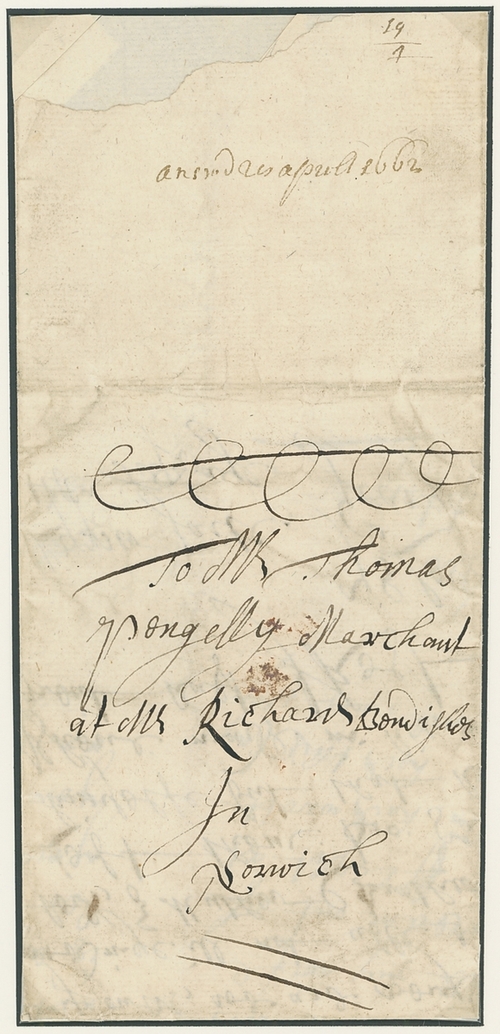 19
4
answrd 20 aprill 1662
To Mr Thomas
Pengelly Marchant
at Mr Richard Bendishes
In
Norwich